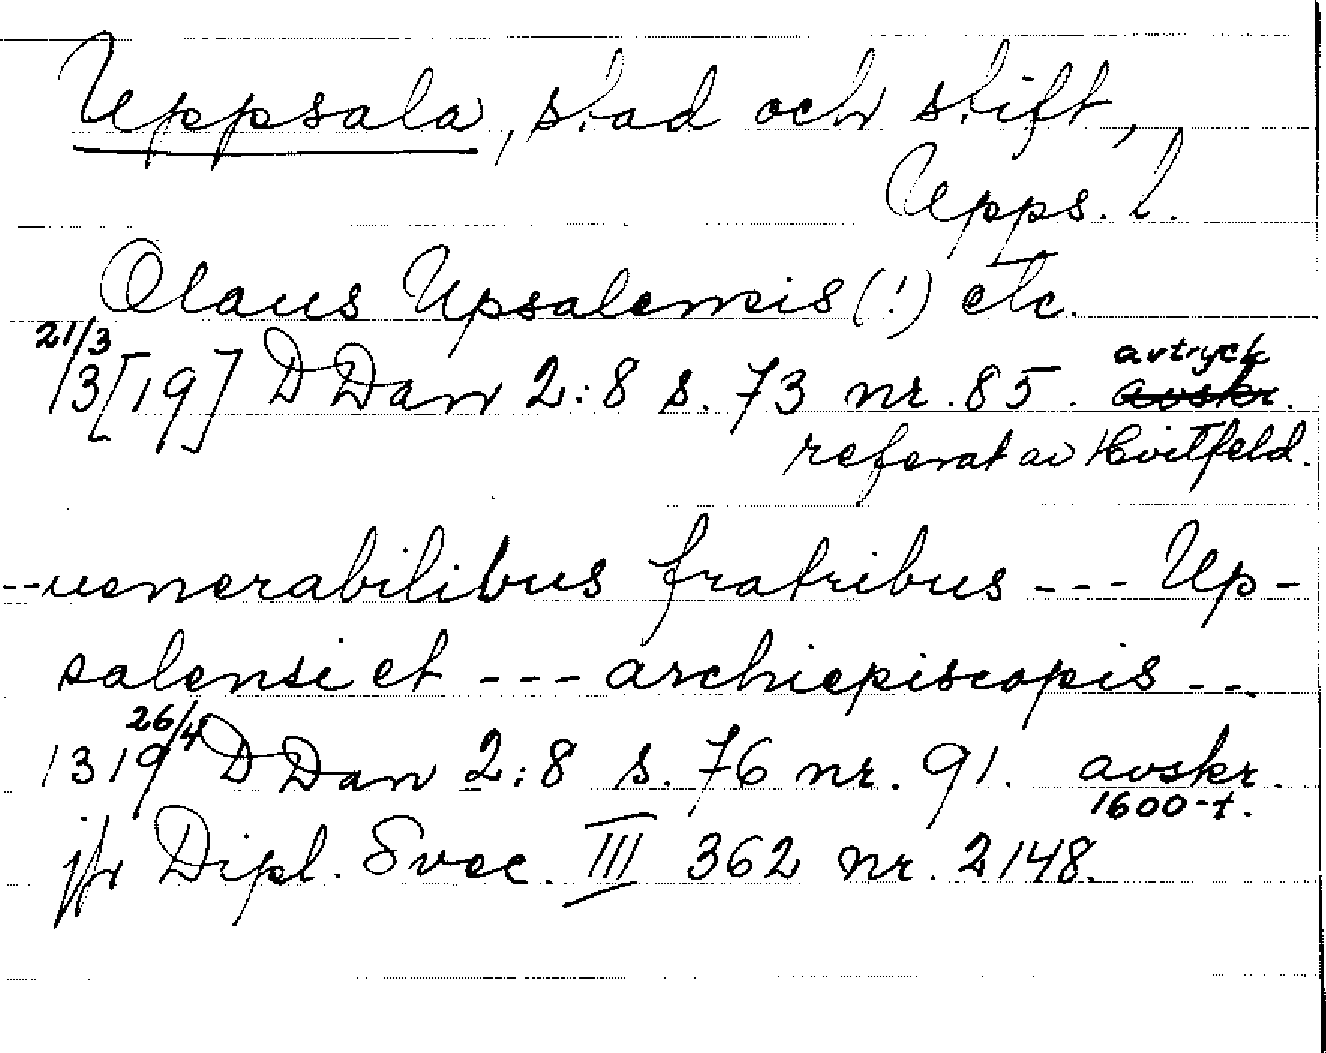 Uppsala, stad och stift,
Upps. l.
Olaus Upsalensis (!) etc.
21/3
13[19] DDan 2:8 s. 73 nr. 85. avtryck
avskr.
referat av Hvitfeld.
--venerabilibus fratribus --- Up-
salensi et --- archiepiscopis ---
26/4
1319 DDan 2:8 s. 76 nr. 91. avskr.
1600-t.
jfr Dipl. Svec. III 362 nr. 2148.